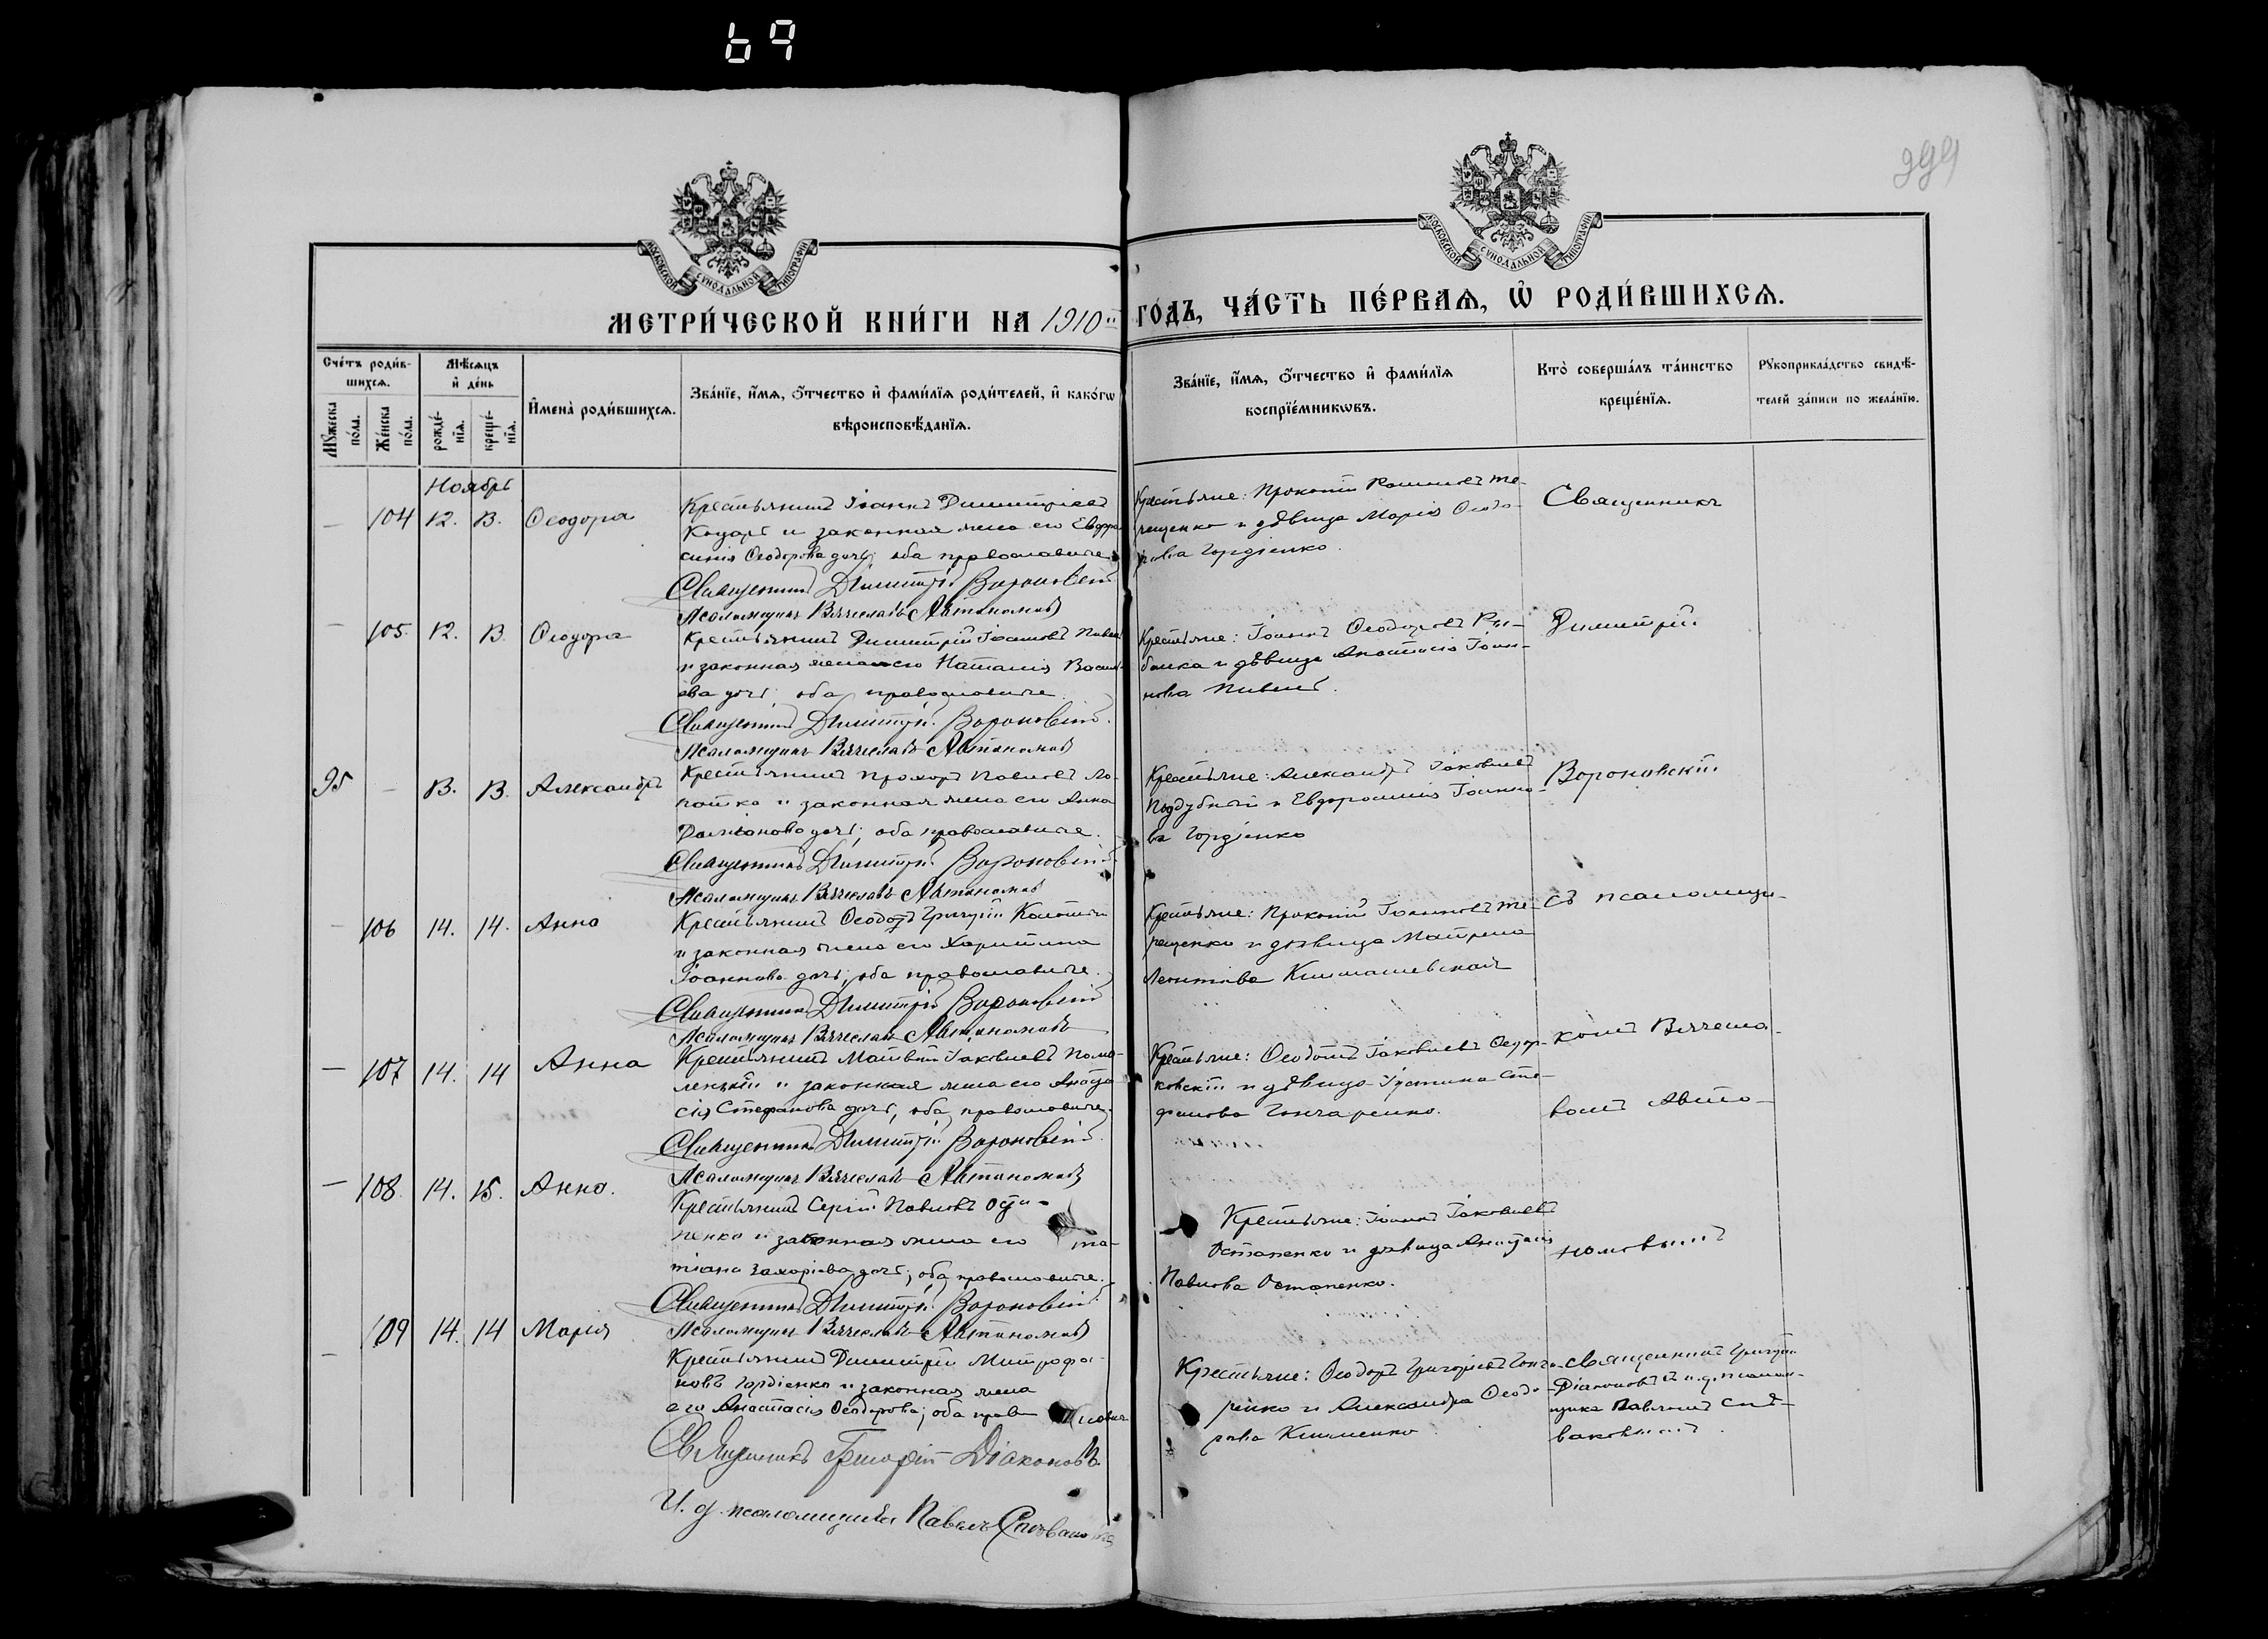 69
994
МОСКОВСКОЙ СѴНОДАЛЬНОЙ ТИПОГРАФІИ
МОСКОВСКОЙ СѴНОДАЛЬНОЙ ТИПОГРАФІИ
МЕТРИ́ЧЕСКОЙ КНИ́ГИ НА 1910й ГО́ДЪ, ЧА́СТЬ ПЕ́РВАѦ, Ѽ РОДИ́ВШИХСѦ.
Сче́тъ роди́в-
шихсѧ.
Мѣ́сѧцъ
и҆ де́нь
Мꙋ́жеска по́ла.
Же́нска по́ла.
рожде́-
нїѧ.
креще́-
нїѧ.
И҆мена̀ роди́вшихсѧ.
Зва́нїе, и҆́мѧ, ѻ҆́тчество и҆ фами́лїѧ роди́телей, и҆ како́гѡ
вѣроисповѣ́данїѧ.
Зва́нїе, и҆́мѧ, ѻ҆́тчество и҆ фами́лїѧ
воспрїе́мникѡвъ.
Кто̀ соверша́лъ та́инство
креще́нїѧ.
Рꙋкоприкла́дство свидѣ́-
телей за́писи по жела́нїю.
Ноябрь
— 104 12. 13. Ѳеодора
Крестьянинъ Іоаннъ Димитріевъ
Коцарь и законная жена его Евфро
синія Ѳеодорова дочь; оба православные.
Священникъ Димитрій Вороновскій
Псаломщикъ Вячеславъ Автономовъ
Крестьяне: Прокопій Іоанновъ Те-
рещенко и дѣвица Марія Ѳеодо-
рова Гордіенко.
Священникъ
— 105. 12. 13. Ѳеодора
Крестьянинъ Димитрій Іоанновъ Пивень
и законная жена его Наталія Васил
ева дочь; оба православные.
Священникъ Димитрій Вороновскій.
Псаломщикъ Вячеславъ Автономовъ
Крестьяне: Іоаннъ Ѳеодоровъ Ры-
балка и дѣвица Анастасія Іоан-
нова Пивень.
Димитрій
95 — 13. 13. Александръ
Крестьянинъ Прохоръ Павловъ Ло-
патка и законная жена его Анна
Даміанова дочь; оба православные.
Священникъ Димитрій Вороновскій.
Псаломщикъ Вячеславъ Автономовъ
Крестьяне: Александръ Іаковлевъ
Поддубный и Евфросинія Іоанно-
ва Гордіенко
Вороновскій
— 106 14. 14. Анна
Крестьянинъ Ѳеодоръ Григорій
и законная жена его Харитина
Іоаннова дочь; оба православные.
Священникъ Димитрій Вороновскій
Псаломщикъ Вячеславъ Автономовъ
Крестьяне: Прокопій Іоанновъ Те-
рещенко и дѣвица Матрена
Леонтіева
съ псаломщи-
— 107 14. 14 Анна
Крестьянинъ Матвѣй Іаковлевъ
и законная жена его Анаста
сія Стефанова дочь; оба православные.
Священникъ Димитрій Вороновскій.
Псаломщикъ Вячеславъ Автономовъ
Крестьяне: Іаковлевъ Ѳедор-
ковскій и дѣвица Іустина Сте-
фанова Гончаренко.
комъ Вячесла-
вомъ Авто-
— 108. 14. 15. Анна.
Крестьянинъ Сергій Павловъ Оси-
пенко и законная жена его Та-
тіана Захаріева дочь; оба православные.
Священникъ Димитрій Вороновскій.
Псаломщикъ Вячеславъ Автономовъ
Крестьяне: Іоаннъ Іаковлевъ
Остапенко и дѣвица Анастасія
Павлова Остапенко.
номовымъ
— 109 14. 14 Марія
Крестьянинъ Димитрій Митрофа-
новъ Гордіенко и законная жена
его Анастасія Ѳеодорова; оба православн
Священникъ Григорій Діаконовъ
И. д. псаломщика Павелъ
Крестьяне: Ѳеодоръ Григоріевъ Гонча-
ренко и Александра Ѳеодо-
рова Клименко
Священникъ Григорій
Діаконовъ и и. д. псалом-
щика